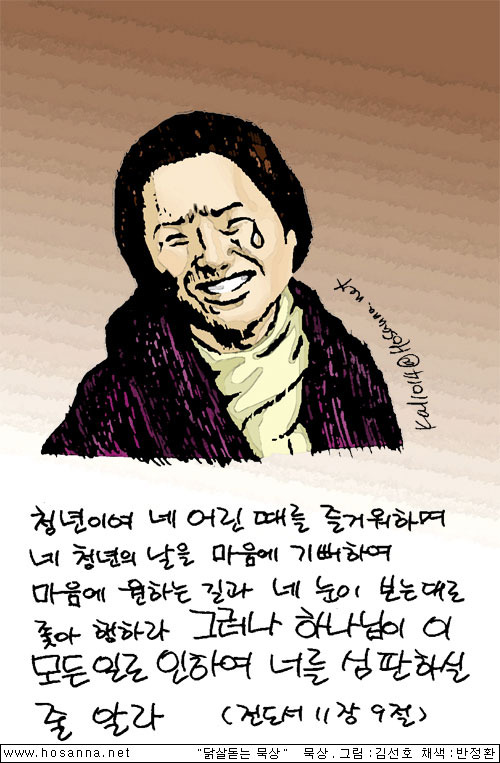 Kal1014@Hosanna.net
청년이여 네 어린 때를 즐거워하며
네 청년의 날을 마음에 기뻐하여
마음에 원하는 길과 네 눈이 보는대로
좇아 행하라 그러나 하나님이 이
모든 일로 인하여 너를 심판하실
줄 알라 (전도서 11장 9절)
www.hosanna.net "닭살돋는 묵상" 묵상.그림:김선호 채색:반정환